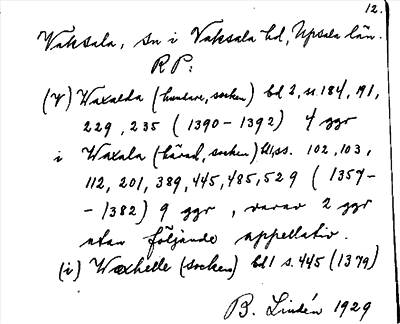 12.
Vaksala, sn i Vaksala hd, Upsala län.
RP:
(V) Waxalda (hundare, socken) bd 2, ss. 184, 191,
229, 235 (1390-1392) 4 ggr
i Waxala (härad, socken) bd 1, ss. 102, 103,
112, 201, 389, 445, 485, 529 (1357-
-1382) 9 ggr, varav 2 ggr
utan följande appellativ.
(i) Waxhelle (socken) bd 1 s. 445 (1379)
B. Lindén 1929